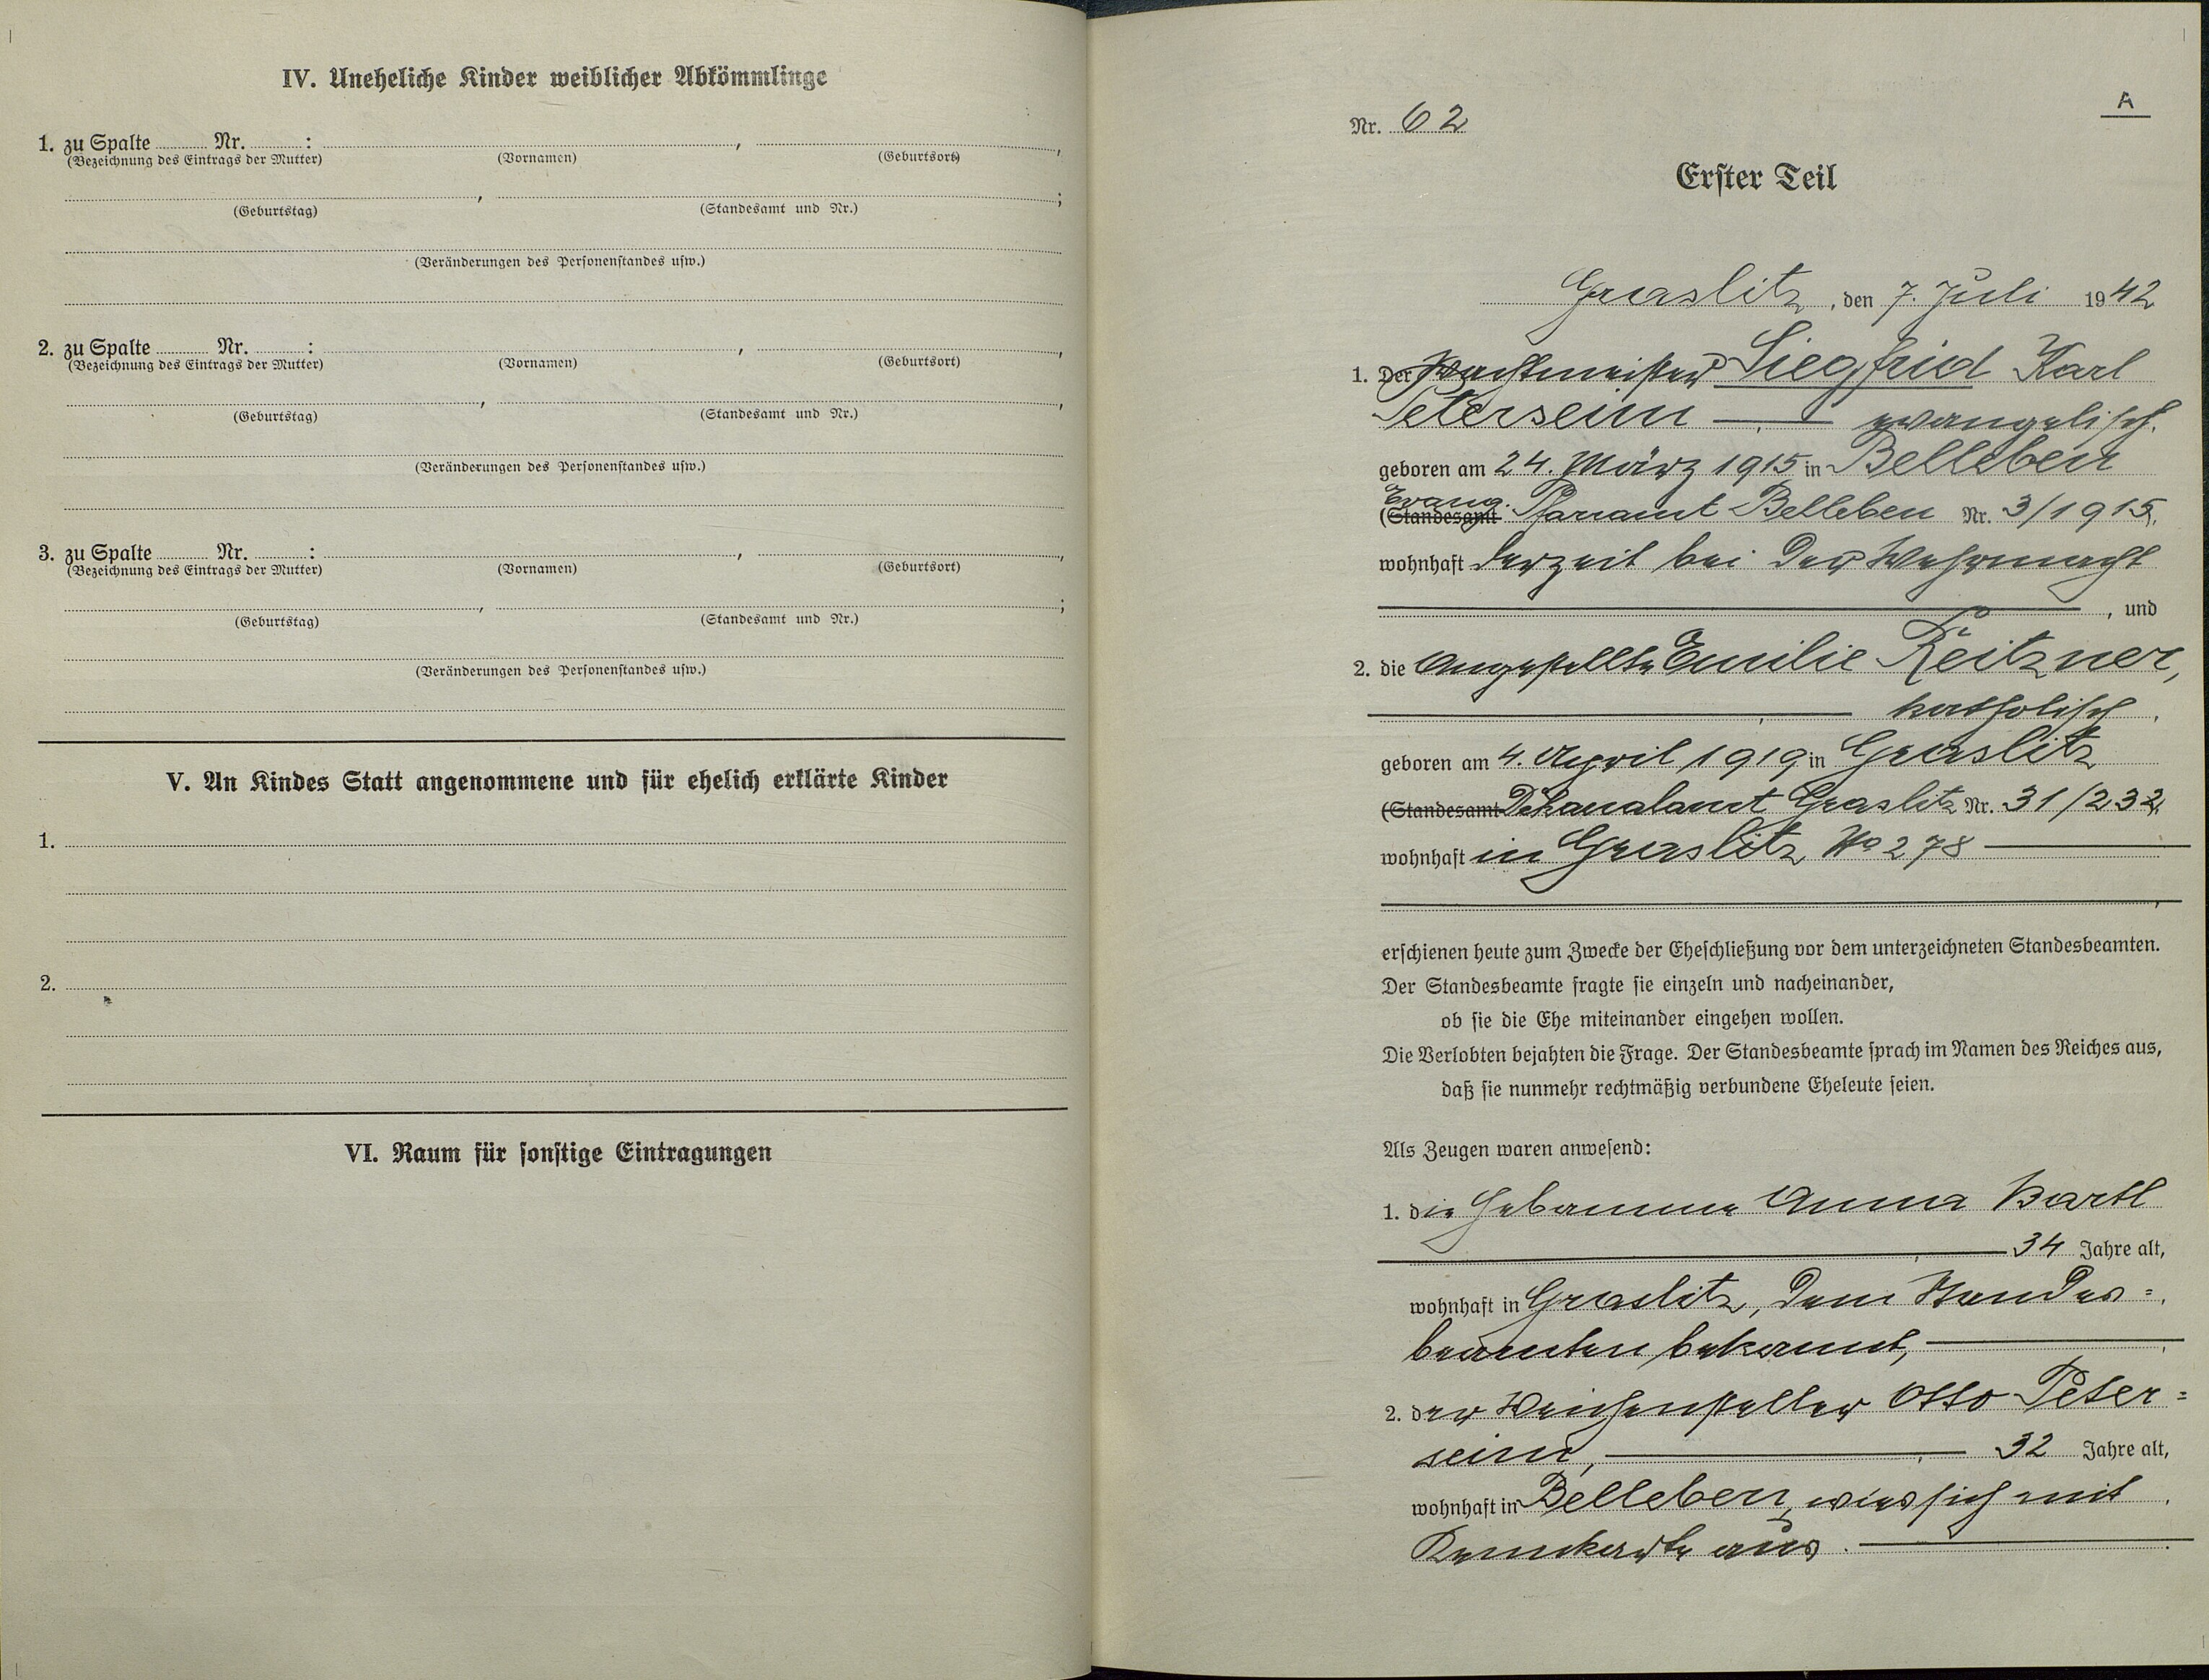 IV. Uneheliche Kinder weiblicher Abkömmlinge
1. zu Spalte ........ Nr. ........ : ........ , ........ ,
(Bezeichnung des Eintrags der Mutter) (Vornamen) (Geburtsort)
........ , ........ ;
(Geburtstag) (Standesamt und Nr.)
(Veränderungen des Personenstandes usw.)
2. zu Spalte ........ Nr. ........ : ........ , ........ ,
(Bezeichnung des Eintrags der Mutter) (Vornamen) (Geburtsort)
........ , ........ ,
(Geburtstag) (Standesamt und Nr.)
(Veränderungen des Personenstandes usw.)
3. zu Spalte ........ Nr. ........ : ........ , ........ ,
(Bezeichnung des Eintrags der Mutter) (Vornamen) (Geburtsort)
........ , ........ ;
(Geburtstag) (Standesamt und Nr.)
(Veränderungen des Personenstandes usw.)
V. An Kindes Statt angenommene und für ehelich erklärte Kinder
1.
2.
VI. Raum für sonstige Eintragungen
A
Nr. 62
Erster Teil
Graslitz, den 7. Juli 1942
1. Der Wachtmeister Siegfried Karl
Peterseim — evangelisch.
geboren am 24. März 1915 in Belleben
Evang.
(Standesamt Pfarramt Belleben Nr. 3/1915,
wohnhaft derzeit bei der Wehrmacht
, und
2. die Angestellte Emilie Reitzner,
katholisch,
geboren am 4. April 1919 in Graslitz
(Standesamt Dekanalamt Graslitz Nr. 31/232,
wohnhaft in Graslitz No 278
erschienen heute zum Zwecke der Eheschließung vor dem unterzeichneten Standesbeamten.
Der Standesbeamte fragte sie einzeln und nacheinander,
ob sie die Ehe miteinander eingehen wollen.
Die Verlobten bejahten die Frage. Der Standesbeamte sprach im Namen des Reiches aus,
daß sie nunmehr rechtmäßig verbundene Eheleute seien.
Als Zeugen waren anwesend:
1. die Hebamme Anna Bartl
34 Jahre alt,
wohnhaft in Graslitz, dem Standes=
beamten bekannt,
2. der Weichensteller Otto Peter=
seim, 32 Jahre alt,
wohnhaft in Belleben, wies sich mit
Kennkarte aus.